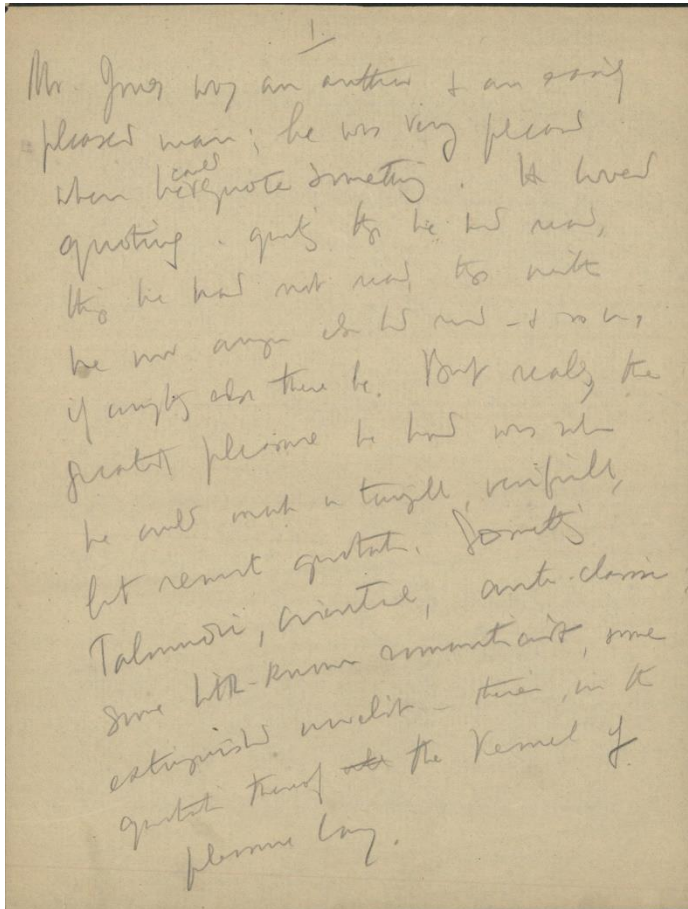 1.
Mr. Jones was an author & an easily
pleased man; he was very pleased
when he could quote something. He loved
quoting. quoting things he had read,
things he had not read, things neither
he nor anyone else had read – & so on,
if anything else there be. But really the
greatest pleasure he had was when
he could make a , verifiable,
but remote quotation. Something
Talmudic, oriental, ante-classic;
some little-known romanticist, some
extinguished novelist – therein, in the
quotation thereof the Kernel of
pleasure lay.